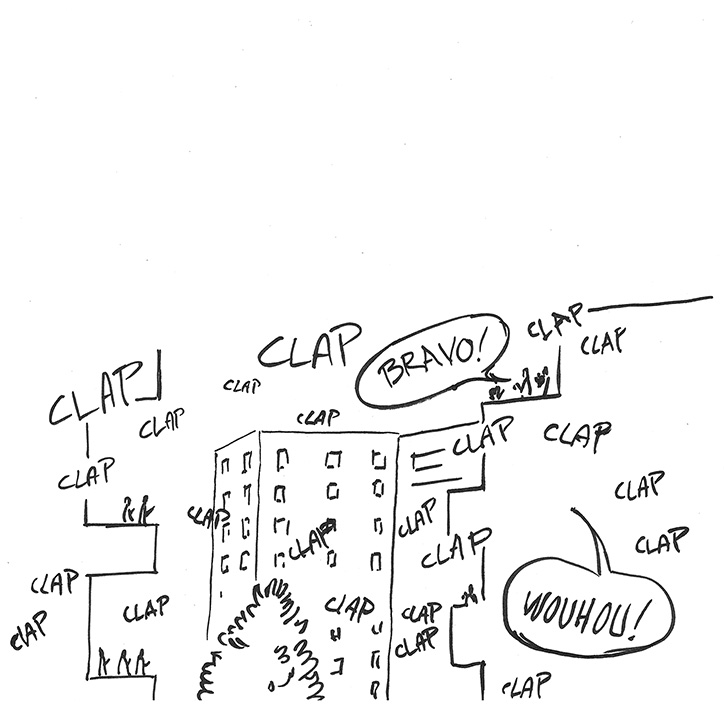 CLAP
CLAP
CLAP
BRAVO!
CLAP
CLAP
CLAP
CLAP
CLAP
CLAP
CLAP
CLAP
CLAP
CLAP
CLAP
CLAP
CLAP
CLAP
CLAP
CLAP
CLAP
CLAP
CLAP
WOUHOU!
CLAP
CLAP